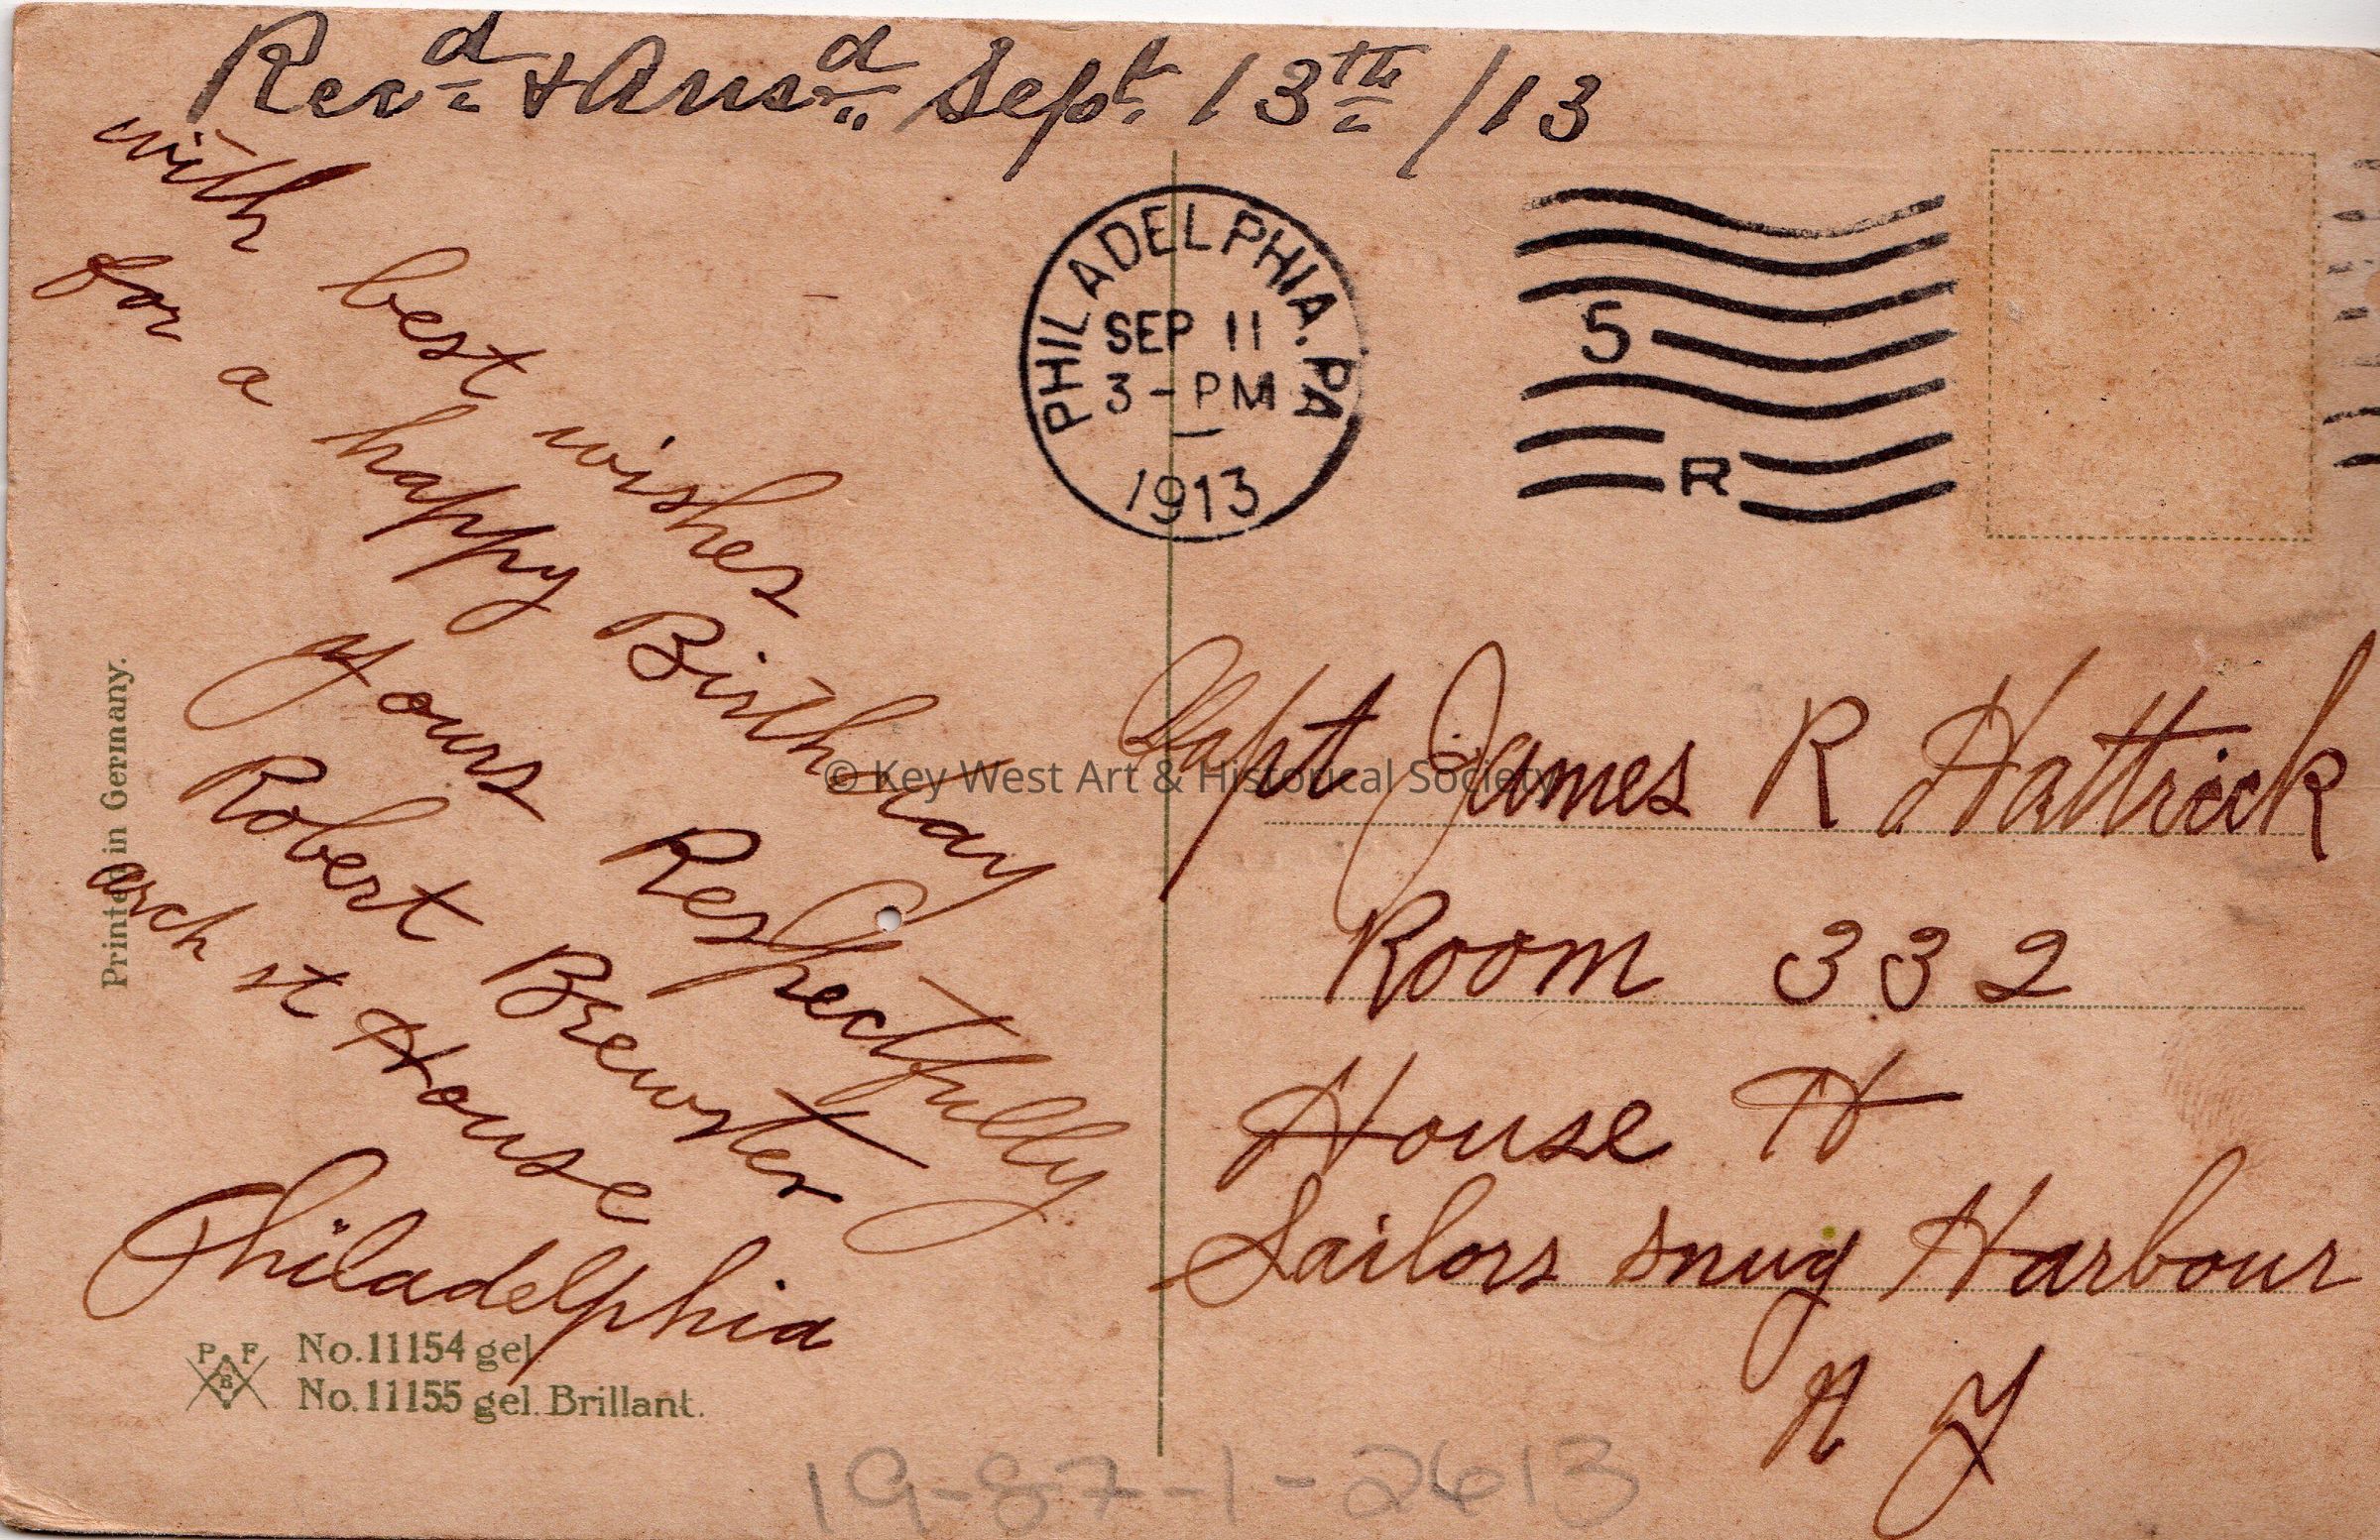 Recd & Ansd Sept 13th /13
with best wishes
for a happy Birthday
yours Respectfully
Robert Brewster
arch st House
Philadelphia
PHILADELPHIA. PA
SEP 11
3 - PM
1913
5
R
Capt James R Hattrick
Room 332
House H
Sailors snug Harbour
N Y
Printed in Germany.
P F
B
No. 11154 gel
No. 11155 gel. Brillant.
© Key West Art & Historical Society
19-87-1-2613